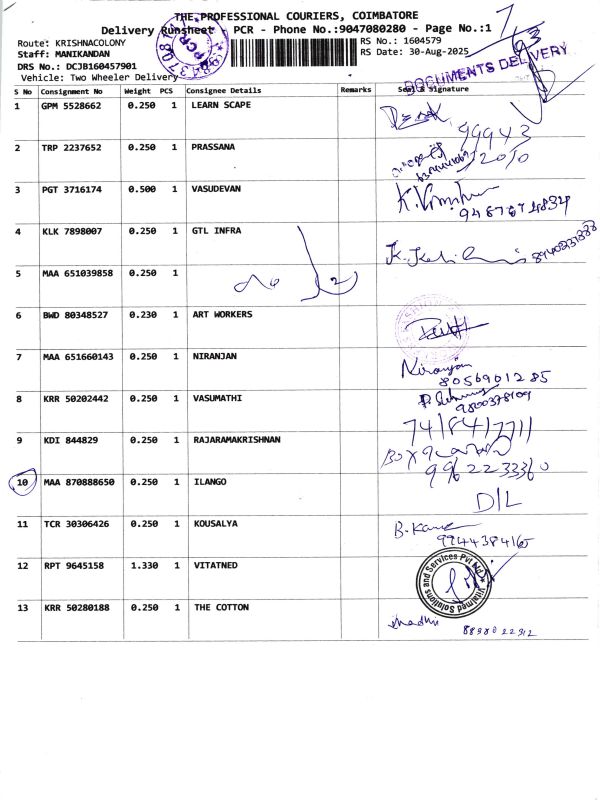 THE PROFESSIONAL COURIERS, COIMBATORE
Delivery Runsheet - PCR - Phone No.:9047080280 - Page No.:1
Route: KRISHNACOLONY
Staff: MANIKANDAN
DRS No.: DCJB160457901
Vehicle: Two Wheeler Delivery
RS No.: 1604579
RS Date: 30-Aug-2025
DOCUMENTS DELIVERY
S No Consignment No Weight PCS Consignee Details Remarks Seal & Signature
1 GPM 5528662 0.250 1 LEARN SCAPE
99943
2 TRP 2237652 0.250 1 PRASSANA
3 PGT 3716174 0.500 1 VASUDEVAN
4 KLK 7898007 0.250 1 GTL INFRA
5 MAA 651039858 0.250 1
6 BWD 80348527 0.230 1 ART WORKERS
7 MAA 651660143 0.250 1 NIRANJAN Niranjan
8056901285
8 KRR 50202442 0.250 1 VASUMATHI
9 KDI 844829 0.250 1 RAJARAMAKRISHNAN
7418417711
10 MAA 870888650 0.250 1 ILANGO
D/L
11 TCR 30306426 0.250 1 KOUSALYA
12 RPT 9645158 1.330 1 VITATNED
Vitalmed Solutions and Services Pvt Ltd
13 KRR 50280188 0.250 1 THE COTTON